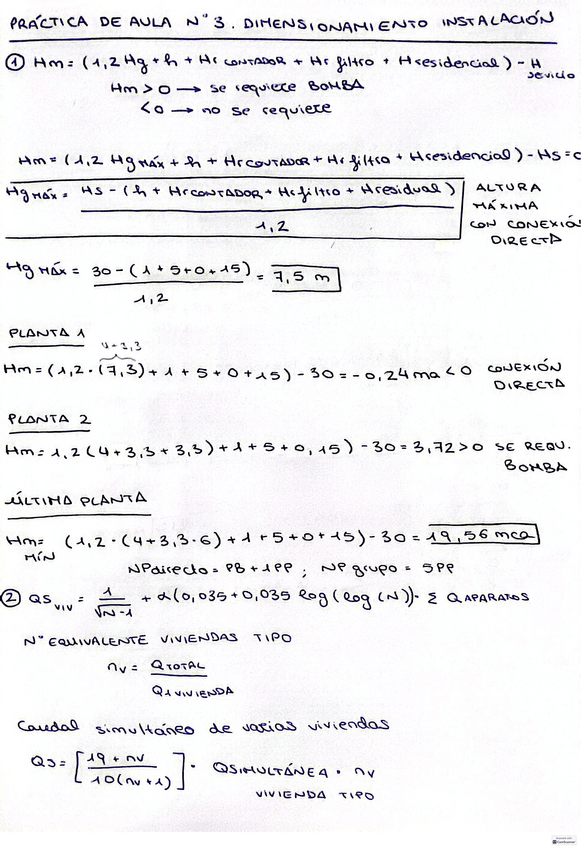 PRÁCTICA DE AULA Nº3. DIMENSIONAMIENTO INSTALACIÓN
① Hm = (1,2 Hg + h + Hr CONTADOR + Hr filtro + Hresidencial) - H servicio
Hm > 0 → se requiere BOMBA
< 0 → no se requiere
Hm = (1,2 Hg MÁX + h + Hr CONTADOR + Hr filtro + Hresidencial) - Hs = 0
Hg MÁX = Hs - (h + Hr CONTADOR + Hr filtro + Hresidual) / 1,2
ALTURA MÁXIMA CON CONEXIÓN DIRECTA
Hg MÁX = 30 - (1 + 5 + 0 + 15) / 1,2 = 7,5 m
PLANTA 1
4+3,3
Hm = (1,2 · (7,3) + 1 + 5 + 0 + 15) - 30 = -0,24 mca < 0 CONEXIÓN DIRECTA
PLANTA 2
Hm = 1,2 (4 + 3,3 + 3,3) + 1 + 5 + 0, 15) - 30 = 3,72 > 0 SE REQU. BOMBA
ÚLTIMA PLANTA
Hm MÍN = (1,2 · (4 + 3,3 · 6) + 1 + 5 + 0 + 15) - 30 = 19,56 mca
NPdirecto = PB + 1PP ; NP grupo = 5PP
② QS VIV = 1 / √N-1 + α (0,035 + 0,035 log (log (N)) · Σ QAPARATOS
Nº EQUIVALENTE VIVIENDAS TIPO
nv = QTOTAL / Q1 VIVIENDA
Caudal simultáneo de varias viviendas
QS = [19 + nv / 10(nv + 1)] · QSIMULTÁNEA VIVIENDA TIPO · nv